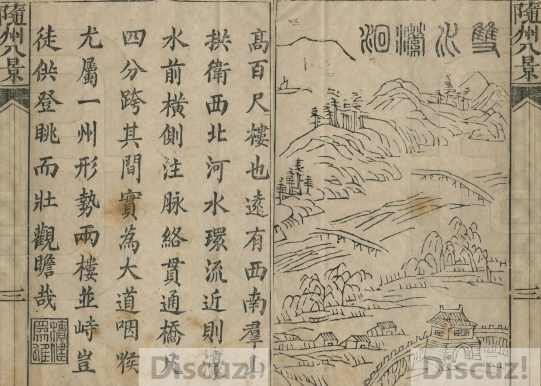 隨州八景
三
雙水瀠洄
高百尺樓也遠有西南羣山
拱衛西北河水環流近則濠
水前橫側注脉絡貫通橋凡
四分跨其間實為大道咽喉
尤屬一州形勢兩樓並峙豈
徒供登眺而壯觀瞻哉
隨州八景
三
Discuz!
Discuz!